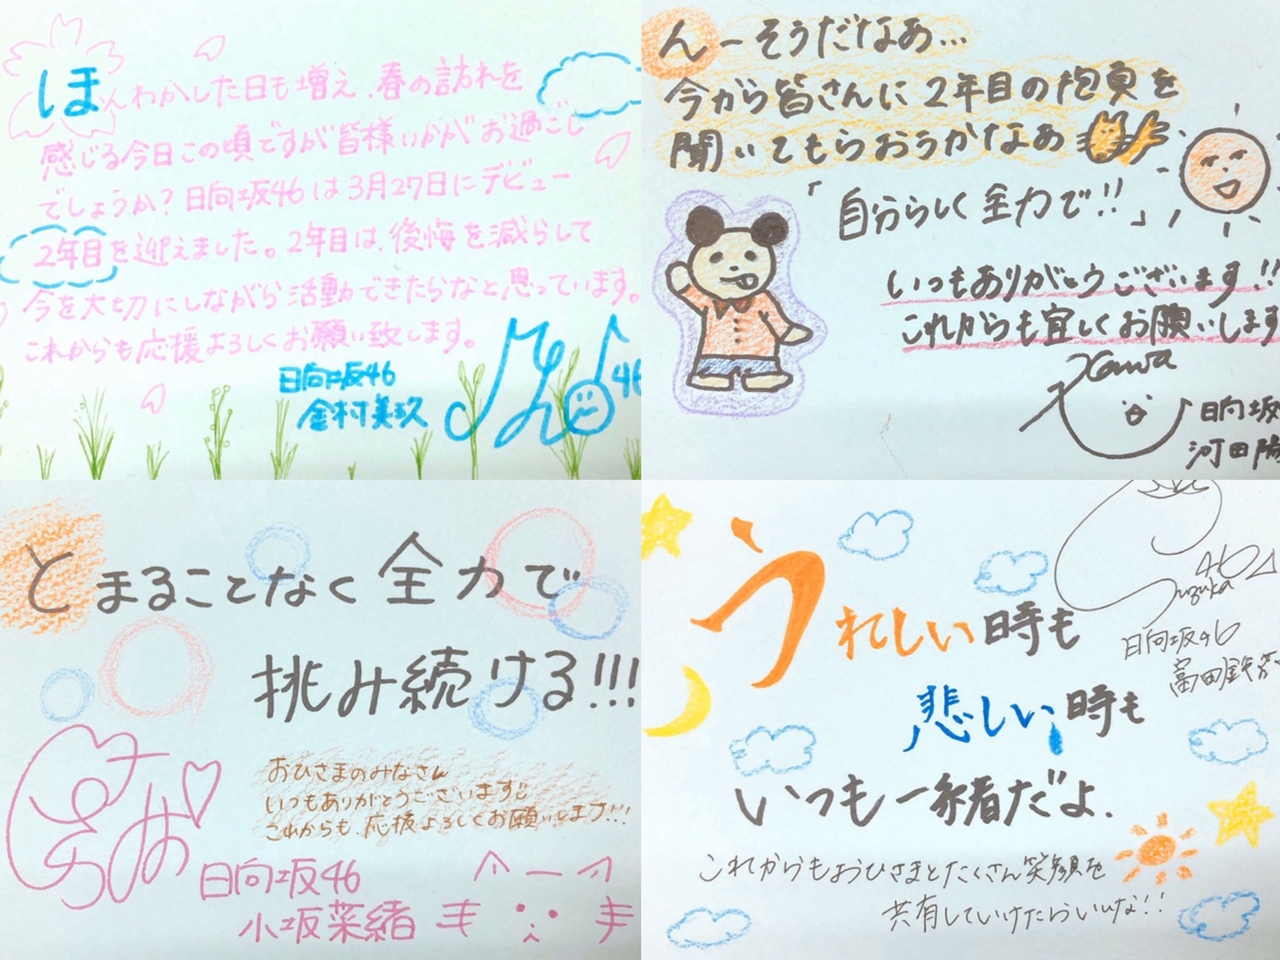 ほんわかした日も増え、春の訪れを
感じる今日この頃ですが皆様いかがお過ごし
でしょうか？日向坂46は3月27日にデビュー
2年目を迎えました。2年目は、後悔を減らして
今を大切にしながら活動できたらなと思っています。
これからも応援よろしくお願い致します。
日向坂46
金村美玖
46
んーそうだなあ…
今から皆さんに2年目の抱負を
聞いてもらおうかなあ
「自分らしく全力で!!」
いつもありがとうございます!!
これからも宜しくお願いします
Kawa
日向坂
河田陽
とまることなく全力で
挑み続ける!!!
おひさまのみなさん
いつもありがとうございます
これからも、応援よろしくお願いします!!!
日向坂46
小坂菜緒
Suzuka
46
日向坂46
富田鈴花
うれしい時も
悲しい時も
いつも一緒だよ.
これからもおひさまとたくさん笑顔を
共有していけたらいいな!!